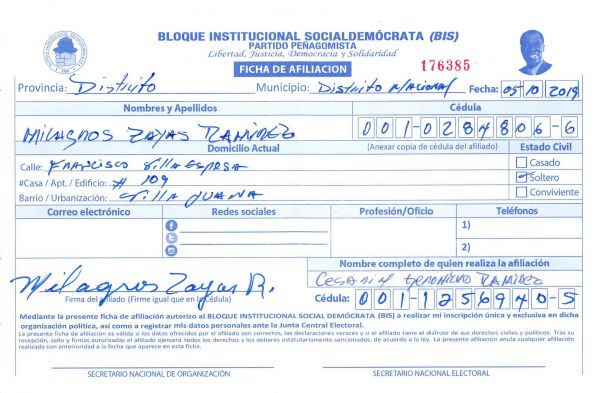 BLOQUE INSTITUCIONAL SOCIALDEMÓCRATA (BIS)
PARTIDO PEÑAGOMISTA
Libertad, Justicia, Democracia y Solidaridad
FICHA DE AFILIACION
176385
Provincia: Distrito Municipio: Distrito Nacional Fecha: 05 10 2019
Nombres y Apellidos Cédula
Milagros Zayas Ramirez 001-0284806-6
Domicilio Actual (Anexar copia de cédula del afiliado) Estado Civil
Calle: Francisco Villa Espesa Casado
#Casa / Apt. / Edificio: # 109 Soltero
Barrio / Urbanización: Villa Juana Conviviente
Correo electrónico Redes sociales Profesión/Oficio Teléfonos
1)
2)
Nombre completo de quien realiza la afiliación
Milagros Zayas R. Ramirez
Firma del afiliado (Firme igual que en la Cédula) Cédula: 001-1256940-5
Mediante la presente ficha de afiliación autorizo al BLOQUE INSTITUCIONAL SOCIAL DEMÓCRATA (BIS) a realizar mi inscripción única y exclusiva en dicha
organización política, así como a registrar mis datos personales ante la Junta Central Electoral.
La presente ficha de afiliación es válida si los datos ofrecidos por el afiliado son correctos, las declaraciones veraces y si el afiliado tiene el disfrute de sus derechos civiles y políticos. Tras su
recepción, sello y firmas autorizadas el afiliado ejercerá todos los derechos y los deberes estatutariamente sancionados, de acuerdo a la ley. La presente afiliación anula cualquier afiliación
realizada con anterioridad a la fecha que aparece en esta ficha.
SECRETARIO NACIONAL DE ORGANIZACIÓN SECRETARIO NACIONAL ELECTORAL